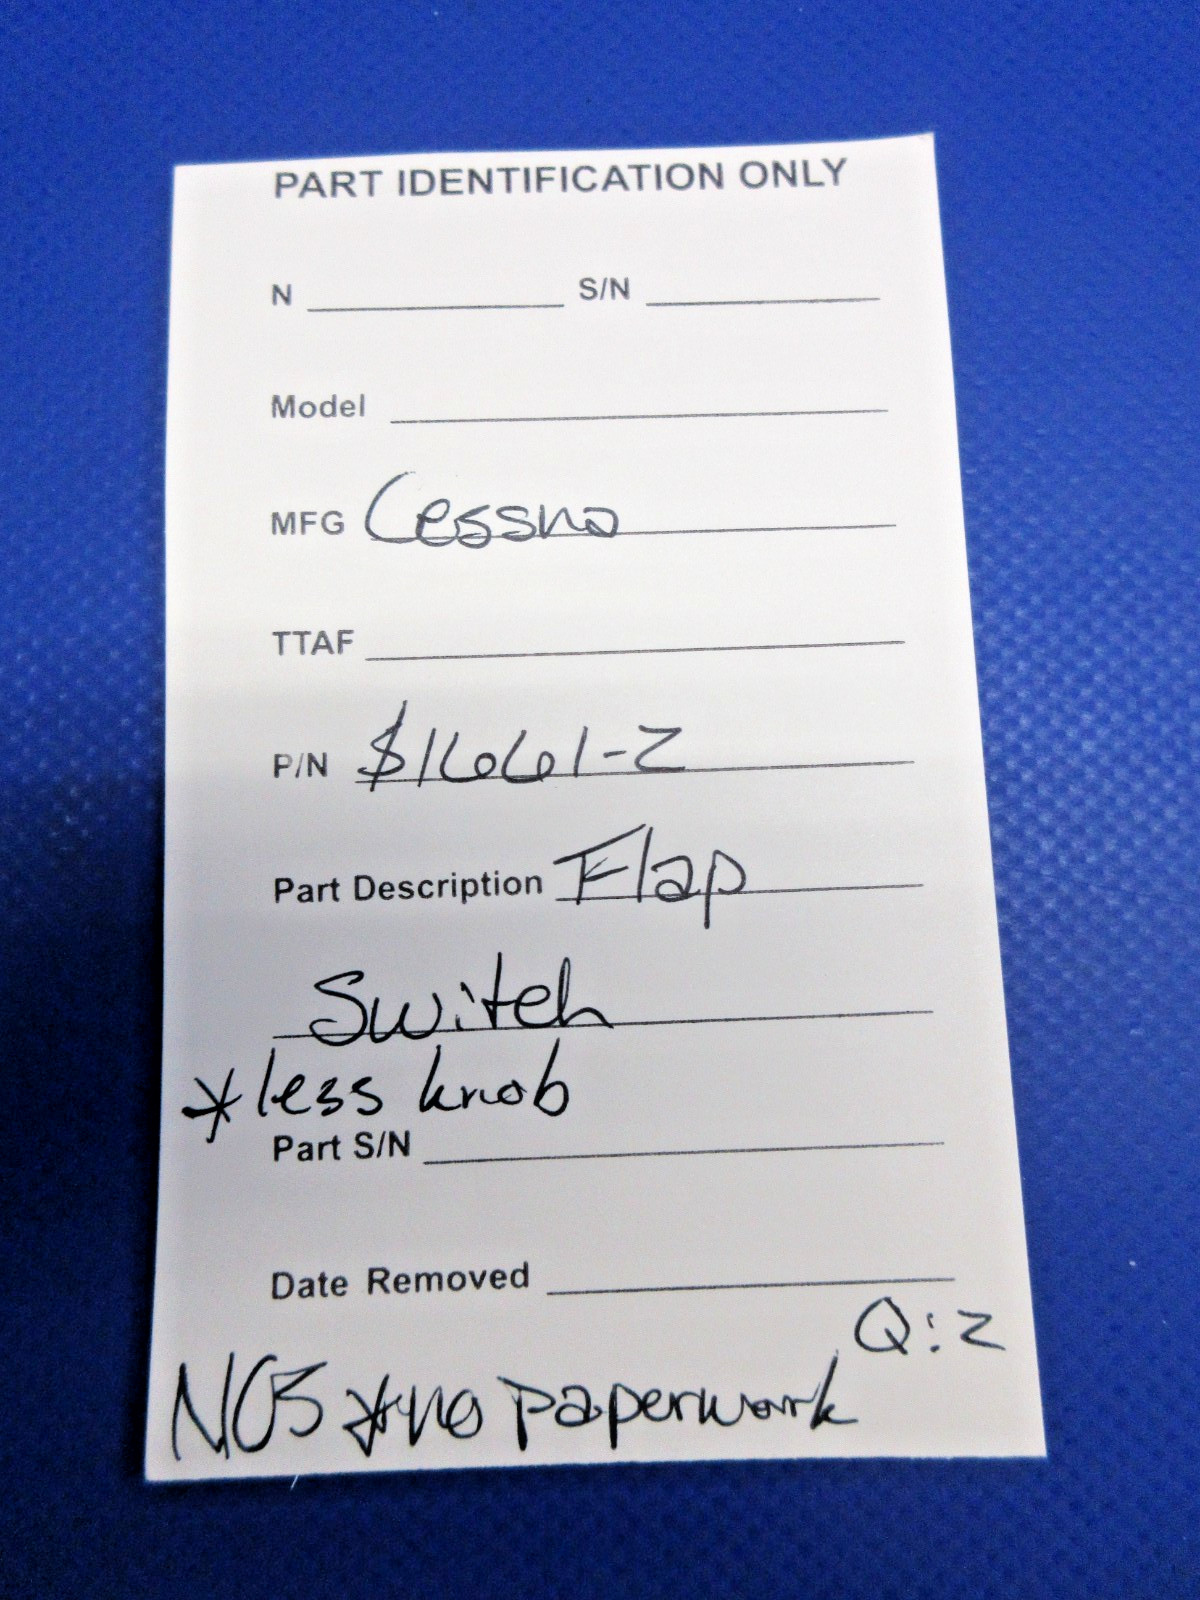 PART IDENTIFICATION ONLY
N S/N
Model
MFG Cessna
TTAF
P/N S1661-2
Part Description Flap
Switch
*less knob
Part S/N
Date Removed
Q:2
NOS *no paperwork